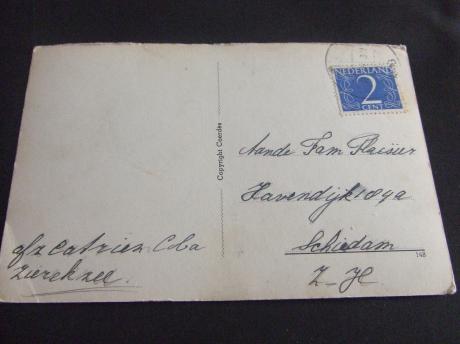 NEDERLAND
2
CENT
Copyright Coerdes
Aande Fam Plaisier
Havendijk 109a
Schiedam
Z-H
148
afz
Coba
Zierekzee.